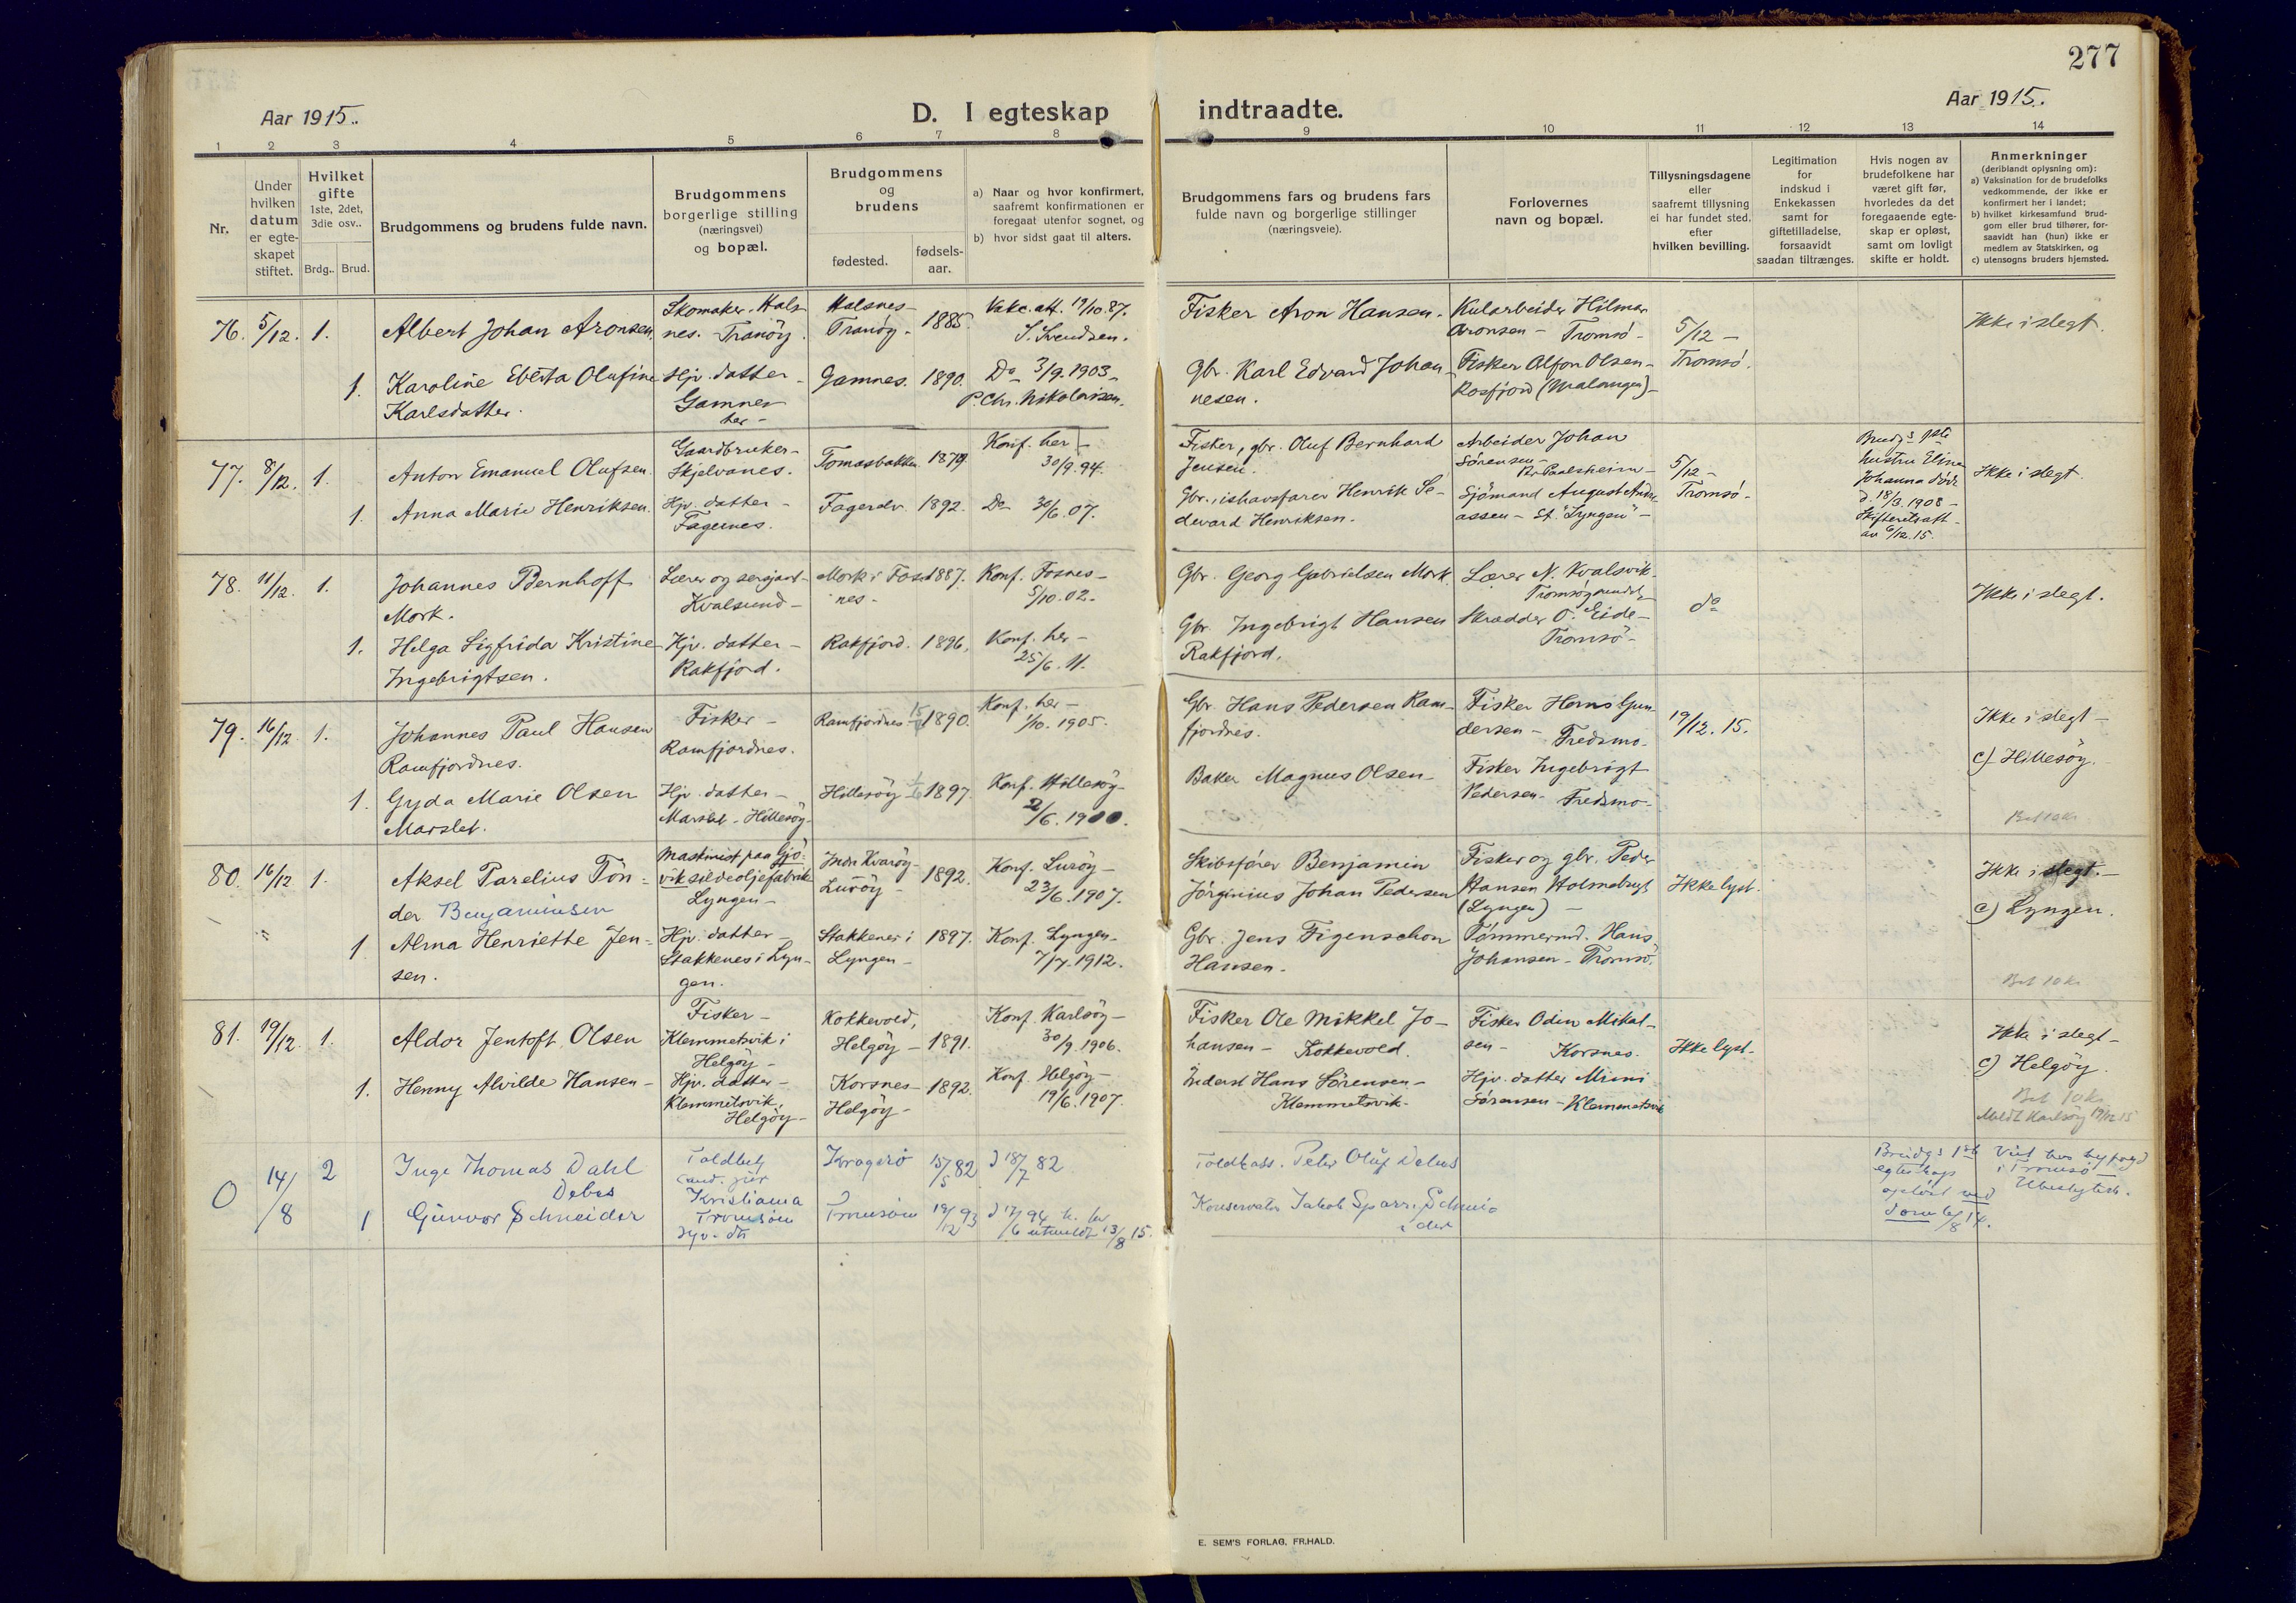 277
Aar 1915.
D. I egteskap indtraadte.
Aar 1915.
1 2 3 4 5 6 7 8 9 10 11 12 13 14
Nr.
Under
hvilken
datum
er egte-
skapet
stiftet.
Hvilket
gifte
1ste, 2det,
3die osv..
Brdg.. Brud.
Brudgommens og brudens fulde navn.
Brudgommens
borgerlige stilling
(næringsvei)
og bopæl.
Brudgommens
og
brudens
fødested.
fødsels-
aar.
a) Naar og hvor konfirmert,
saafremt konfirmationen er
foregaat utenfor sognet, og
b) hvor sidst gaat til alters.
Brudgommens fars og brudens fars
fulde navn og borgerlige stillinger
(næringsveie).
Forlovernes
navn og bopæl.
Tillysningsdagene
eller
saafremt tillysning
ei har fundet sted,
efter
hvilken bevilling.
Legitimation
for
indskud i
Enkekassen
samt for
giftetilladelse,
forsaavidt
saadan tiltrænges.
Hvis nogen av
brudefolkene har
været gift før,
hvorledes da det
foregaaende egte-
skap er opløst,
samt om lovligt
skifte er holdt.
Anmerkninger
(deriblandt oplysning om):
a) Vaksination for de brudefolks
vedkommende, der ikke er
konfirmert her i landet;
b) hvilket kirkesamfund brud-
gom eller brud tilhører, for-
saavidt han (hun) ikke er
medlem av Statskirken, og
c) utensogns bruders hjemsted.
76. 5/12. 1.
Albert Johan Aronsen.
Skomaker. Hals
nes. Tranöy.
Halsnes-
Tranöy.
1885.
Vakc. att. 19/10.87.
S. Svendsen.
Fisker Aron Hansen.
Kularbeider Hilmar
Aronsen - Tromsö-
5/12 -
Tromsö.
Ikke i slegt.
1.
Karoline Eberta Olufine
Karlsdatter.
Hjv. datter -
Gamnes
her -
Gamnes. 1890.
Do 3/9.1903-
P. Chr. Nikolaisen.
Gbr. Karl Edvard Johan-
nesen.
Fisker Alfon Olsen-
Rosfjord (Malangen)-
77. 8/12. 1.
Anton Emanuel Olufsen.
Gaardbruker-
Skjelvanes.
Tomasbakken. 1879
Konf. her -
30/9.94.
Fisker, gbr. Oluf Bernhard
Jensen.
Arbeider Johan
Sörensen-
5/12 -
Tromsö-
Brudg.s 1ste
hustru Elina
Johanna döde
d. 18/3.1908-
Skifteretsatt-
av 6/12.15.
Ikke i slegt.
1.
Anna Marie Henriksen.
Hjv. datter -
Fagernes.
1892.
Do 30/6.07.
Gbr., ishavsfarer Henrik Se-
devard Henriksen.
Sjömand August Andre-
assen - St. "Lyngen"-
78. 11/12. 1.
Johannes Bernhoff
Mork.
Lærer og sersjant-
Kvalsund-
Mork i Fos-
nes-
1887.
Konf. Fosnes-
5/10.02.
Gbr. Georg Gabrielsen Mork.
Lærer N. Kvalsvik.
Tromsöysundet
do
Ikke i slegt.
1.
Helga Sigfrida Kristine
Ingebrigtsen.
Hjv. datter -
Rakfjord.
Rakfjord. 1896.
Konf. her-
25/6.11.
Gbr. Ingebrigt Hansen
Rakfjord.
Skrædder O. Eide-
Tromsö-
79. 16/12 1.
Johannes Paul Hansen
Ramfjordnes.
Fisker -
Ramfjordnes.
Ramfjordnes 1890.
Konf. her-
1/10. 1905.
Gbr. Hans Pedersen Ram-
fjordnes.
Fisker Hans Gun
dersen - Fredsmo.
19/12.15.
Ikke i slegt -
c) Hillesöy.
1.
Gyda Marie Olsen
Marslet.
Hjv. datter -
Marslet - Hillesöy-
Hillesöy 1897.
Konf. Hillesöy-
2/6.1900.
Baker Magnus Olsen-
Fisker Ingebrigt
Pedersen- Fredsmo-
Bet 10 kr
80. 16/12 1.
Aksel Parelius Tön-
der Benjaminsen
Maskinist paa Gjö-
vik sildeoljefabrik
Lyngen-
Indr. Kvaröy-
Luröy-
1892.
Konf. Luröy-
23/6.1907.
Skibsförer Benjamin
Jörginius Johan Pedersen
Fisker og gbr. Peder
Hansen Holmebugt
(Lyngen) -
Ikke lyst.
Ikke i slegt.-
c) Lyngen.
1.
Alma Henriette Jen-
sen.
Hjv. datter -
Stakkenes i Lyn-
gen.
Stakkenes i
Lyngen-
1897.
Konf. Lyngen-
7/7.1912.
Gbr. Jens Figenschou
Hansen.
Tömmermd. Hans
Johansen - Tromsö.
Bet 10 kr
81. 19/12. 1.
Aldor Jentoft Olsen
Fisker-
Klemmetsvik i
Helgöy-
Kokkevold,
Helgöy-
1891.
Konf. Karlsöy-
30/9.1906.
Fisker Ole Mikkel Jo-
hansen - Kokkevold.
Fisker Odin Mikal-
sen- Korsnes.
Ikke lyst.
Ikke i slegt-
c) Helgöy.
1.
Henny Alvilde Hansen-
Hjv. datter-
Klemmetsvik,
Helgöy-
Korsnes-
Helgöy-
1892.
Konf. Helgöy-
19/6.1907.
Inderst Hans Sörensen-
Klemmetsvik-
Hjv. datter Mimi
Sörensen - Klemmetsvik
Bet 10 kr
Meldt Karlsöy 19/12 15
0 14/8 2
Inge Thomas Dahl
Debes
Toldbetj
cand. jur
Kristiania
Kragerö 15/5 82
d 18/7 82
Toldkass. Peter Oluf Debes
Brudgs 1ste
egteskap
oplöst ved
dom 6/8 14.
Viet hos byfogd
i Tromsö
1
Gunvor Schneider
Tromsöen
Tromsöen 19/12 93
d 17/6 94
utmeldt 13/8 15.
Konservator Jakob Sparre Schnei
der
E. SEM'S FORLAG, FR.HALD.